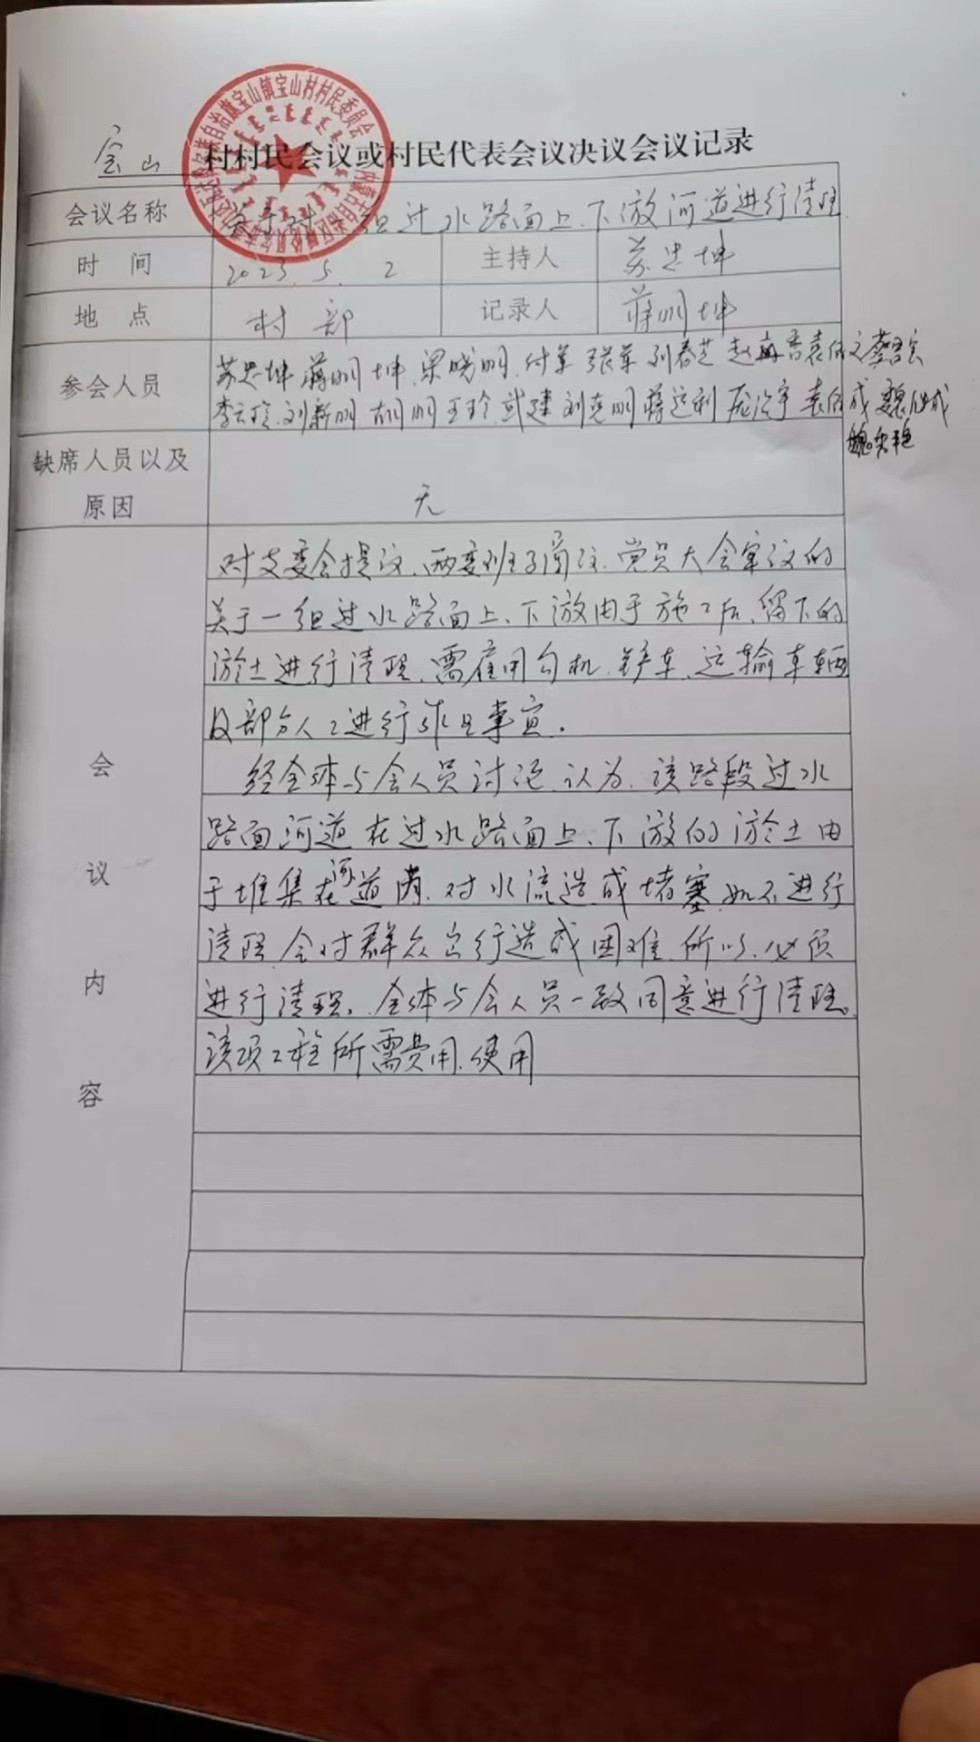 宝山 村村民会议或村民代表会议决议会议记录
会议名称 关于对一组过水路面上、下游河道进行清理
时 间 2023.5.2 主持人 苏忠坤
地 点 村部 记录人 蒋明坤
参会人员 苏忠坤 蒋明坤 梁晓明 付军 张军 刘春芝 赵
李云玲 刘新明 胡明 王玲 刘克明 蒋运利
缺席人员以及
原因 无
会议内容
对支委会提议、两委班子商议、党员大会审议的
关于一组过水路面上、下游由于施工后,留下的
淤土进行清理,需雇用勾机、铲车、运输车辆
及部分人工进行作业事宜.
经全体与会人员讨论,认为,该路段过水
路面河道在过水路面上、下游的淤土由
于堆集在河道内,对水流造成堵塞,如不进行
清理,会对群众出行造成困难,所以,必须
进行清理,全体与会人员一致同意进行清理。
该项工程所需费用,使用